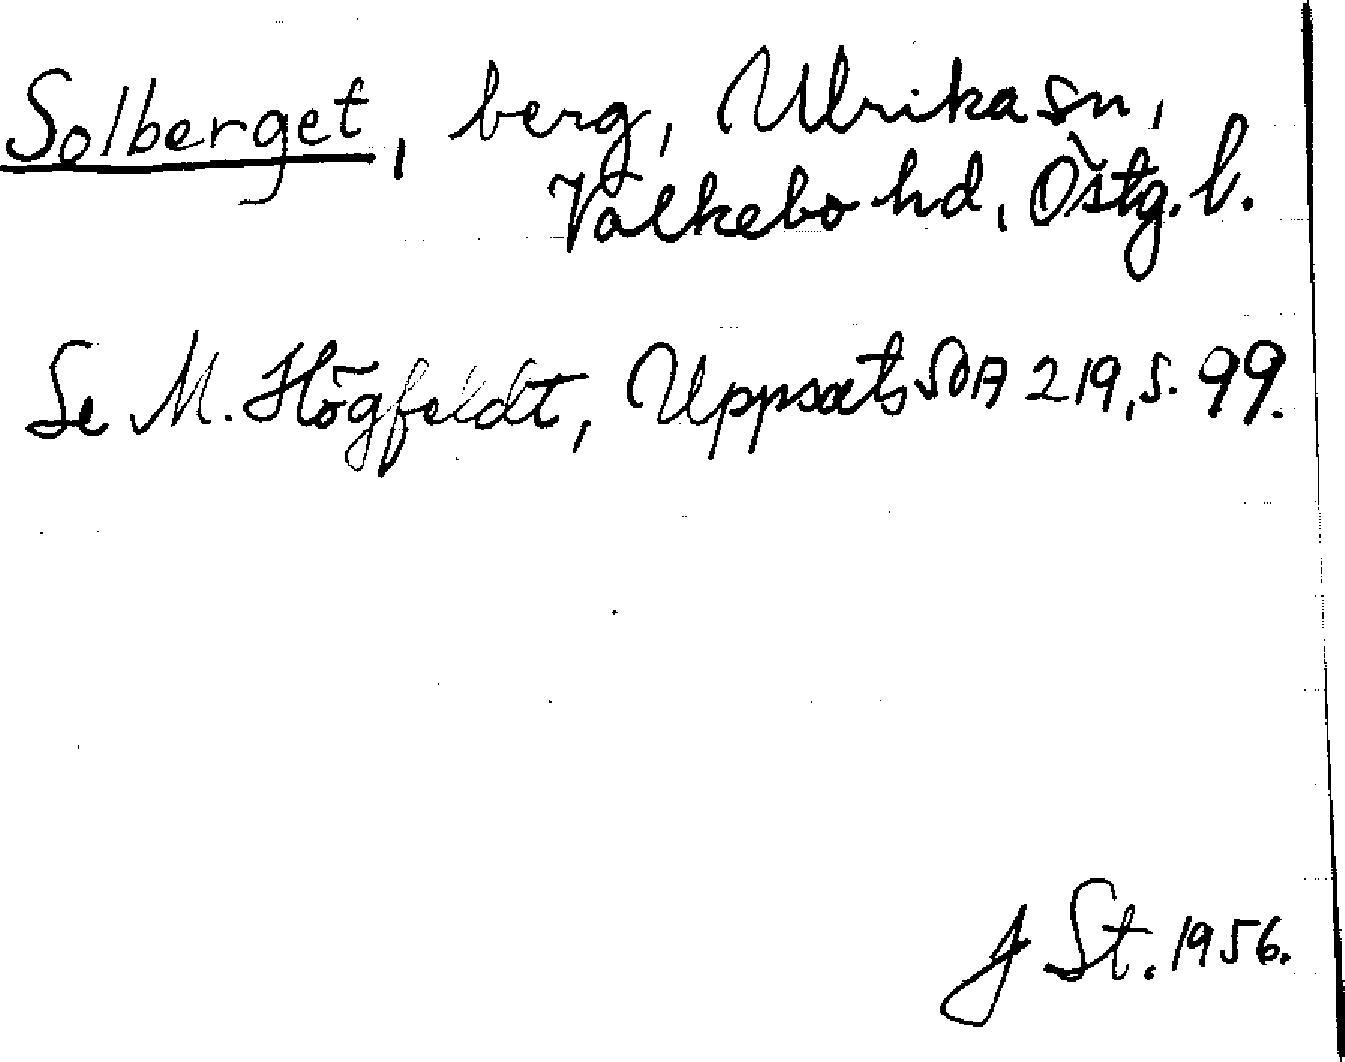 Solberget, berg, Ulrika sn,
Valkebo hd, Östg. l.
Se M. Högfeldt, Uppsats SOA 219, s. 99.
J St. 1956.